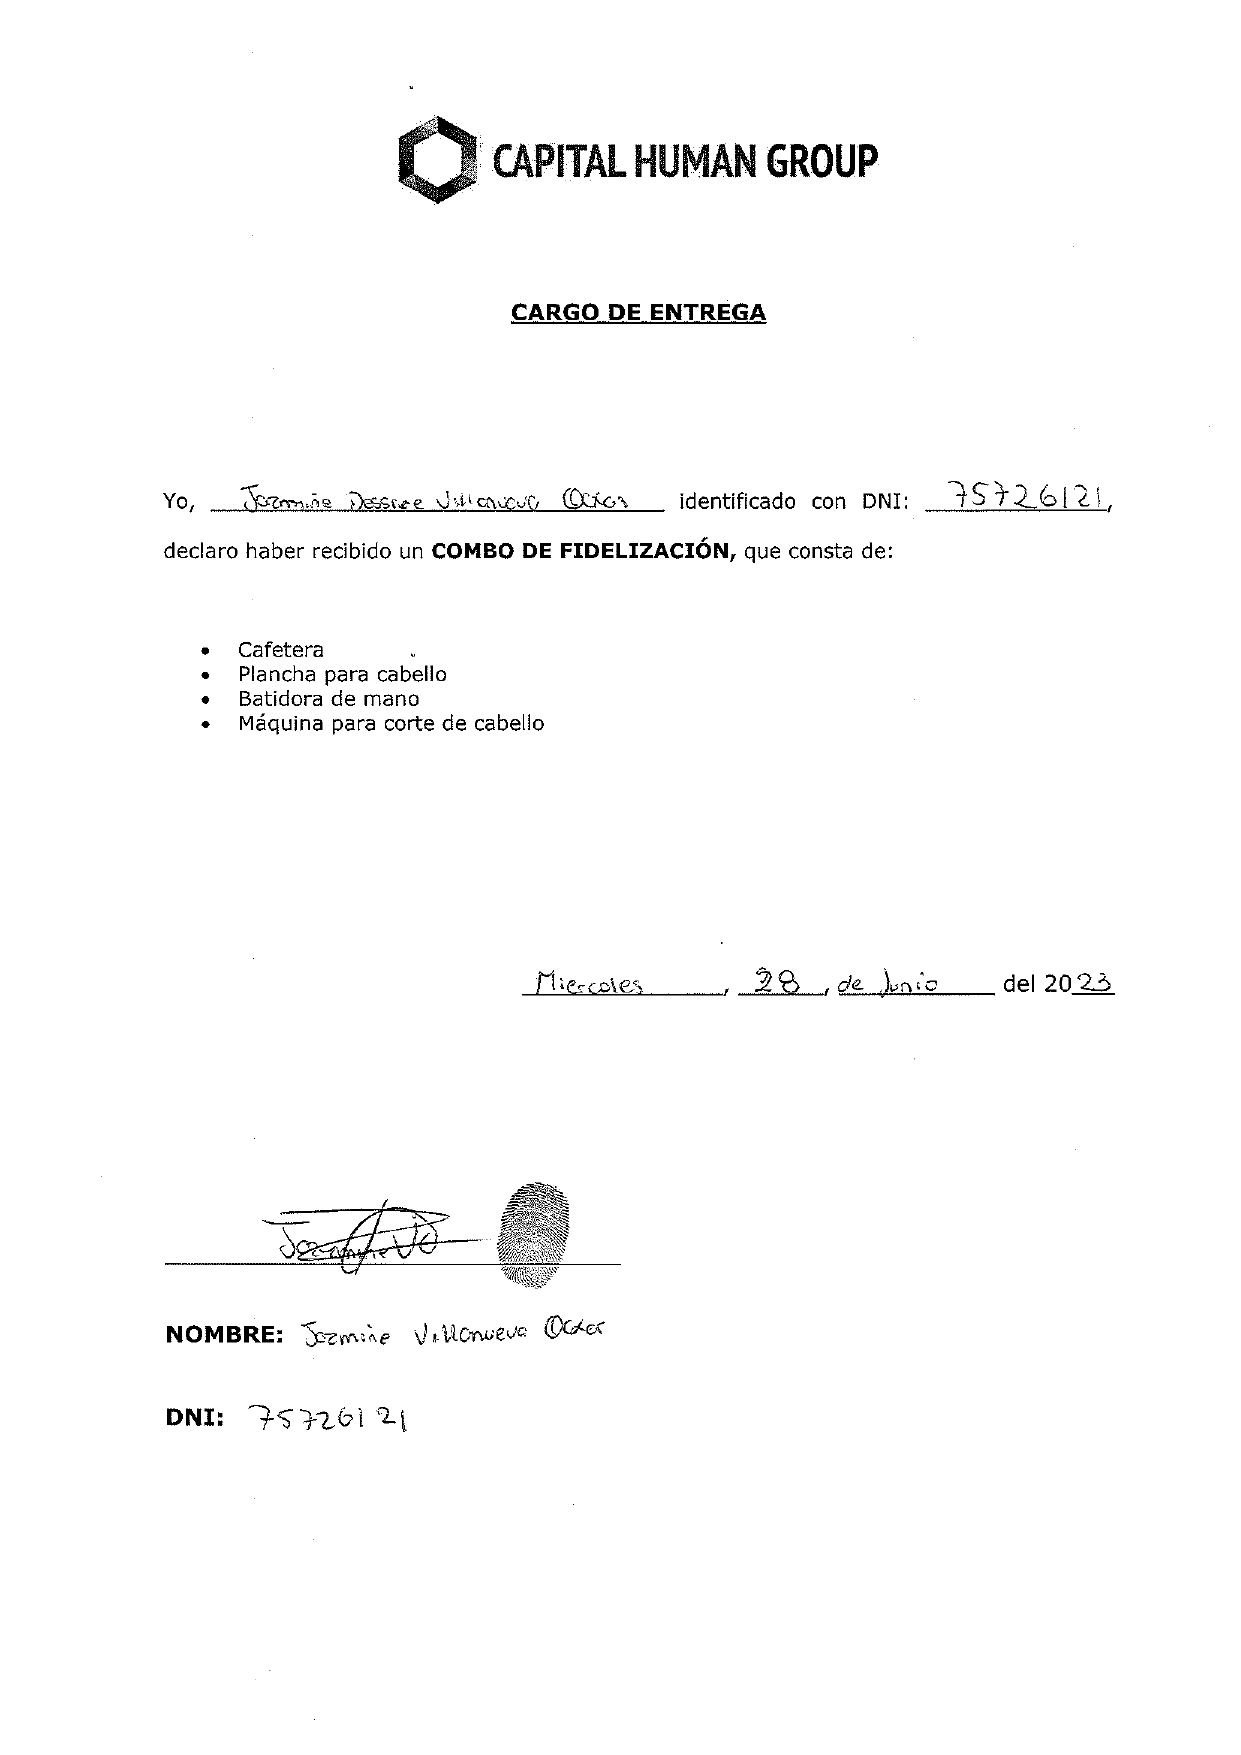 CAPITAL HUMAN GROUP
CARGO DE ENTREGA
Yo, Jazmine Dessiree Villanueva identificado con DNI: 75726121,
declaro haber recibido un COMBO DE FIDELIZACIÓN, que consta de:
• Cafetera
• Plancha para cabello
• Batidora de mano
• Máquina para corte de cabello
Miercoles, 28, de Junio del 2023
NOMBRE: Jazmine Villanueva
DNI: 75726121